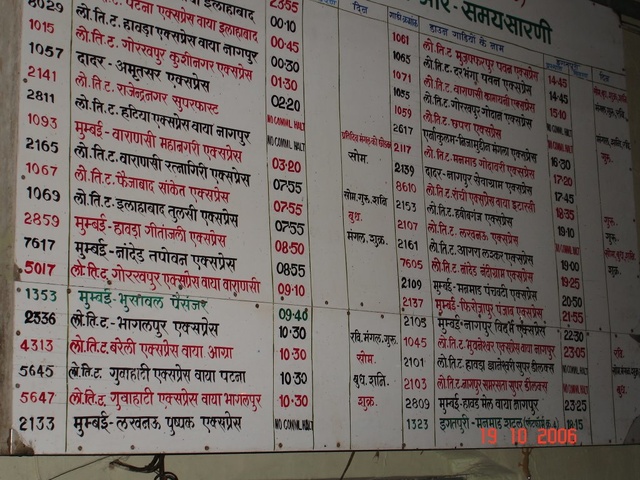 8029 लो.ति.ट. पटना एक्सप्रेस वाया इलाहाबाद 23:55
1015 लो.ति.ट. हावड़ा एक्सप्रेस वाया नागपुर 00:10
1057 लो.ति.ट. गोरखपुर कुशीनगर एक्सप्रेस 00:45
2141 दादर - अमृतसर एक्सप्रेस 00:30
2811 लो.ति.ट. राजेन्द्रनगर सुपरफास्ट 01:30
1093 लो.ति.ट. हटिया एक्सप्रेस वाया नागपुर 02:20
2165 मुम्बई - वाराणसी महानगरी एक्सप्रेस NO COMML HALT
1067 लो.ति.ट. वाराणसी रत्नागिरी एक्सप्रेस 03:20 सोम.
1069 लो.ति.ट. फैजाबाद साकेत एक्सप्रेस 07:55
2859 लो.ति.ट. इलाहाबाद तुलसी एक्सप्रेस 07:55 सोम. गुरू. शनि
7617 मुम्बई - हावड़ा गीतांजली एक्सप्रेस 07:55 बुध.
5017 मुम्बई - नांदेड़ तपोवन एक्सप्रेस 08:50 मंगल. शुक्र.
लो.ति.ट. गोरखपुर एक्सप्रेस वाया वाराणसी 08:55
1353 मुम्बई - भुसावल पैसेंजर 09:10
2336 लो.ति.ट. - भागलपुर एक्सप्रेस 09:40
4313 लो.ति.ट. बरेली एक्सप्रेस वाया आग्रा 10:30 रवि. मंगल. गुरू.
5645 लो.ति.ट. गुवाहाटी एक्सप्रेस वाया पटना 10:30 सोम.
5647 लो.ति.ट. गुवाहाटी एक्सप्रेस वाया भागलपुर 10:30 बुध. शनि.
2133 मुम्बई - लखनऊ पुष्पक एक्सप्रेस NO COMML HALT शुक्र.
दिन
और - समयसारणी
गाड़ी क्रमांक डाउन गाडियों के नाम दिन
1061 लो.ति.ट मुजफ्फरपुर पवन एक्सप्रेस 14:45
1065 लो.ति.ट दरभंगा पवन एक्सप्रेस 14:45
1071 लो.ति.ट. वाराणसी कामायनी एक्सप्रेस 15:10
1055 लो.ति.ट. गोरखपुर गोदान एक्सप्रेस
1059 लो.ति.ट. छपरा एक्सप्रेस
2617 एर्नाकुलम - निजामुद्दीन मंगला एक्सप्रेस
2117 लो.ति.ट. मनमाड गोदावरी एक्सप्रेस 16:30
2139 दादर - नागपुर सेवाग्राम एक्सप्रेस 17:20
8610 लो.ति.ट रांची एक्सप्रेस वाया इटारसी 17:45
2153 लो.ति.ट. हबीबगंज एक्सप्रेस 18:35
2107 लो.ति.ट. लखनऊ एक्सप्रेस 19:10
2161 लो.ति.ट. आगरा लश्कर एक्सप्रेस NO COMML HALT
7605 लो.ति.ट. नांदेड़ नंदीग्राम एक्सप्रेस 19:00
2109 मुम्बई - मनमाड पंचवटी एक्सप्रेस 19:25
2137 मुम्बई - फिरोजपुर पंजाब एक्सप्रेस 20:50
2105 मुम्बई - नागपुर विदर्भ एक्सप्रेस 21:55
1045 लो.ति.ट. भुवनेश्वर एक्सप्रेस वाया नागपुर 22:30
2101 लो.ति.ट. हावड़ा ज्ञानेश्वरी सुपर डीलक्स 23:05
2103 लो.ति.ट. नागपुर समरसता सुपर डीलक्स NO COMML HALT
2809 मुम्बई - हावड़ मेल वाया नागपुर 23:25
1323 इगतपुरी - मनमाड शटल 18:15
19 10 2006